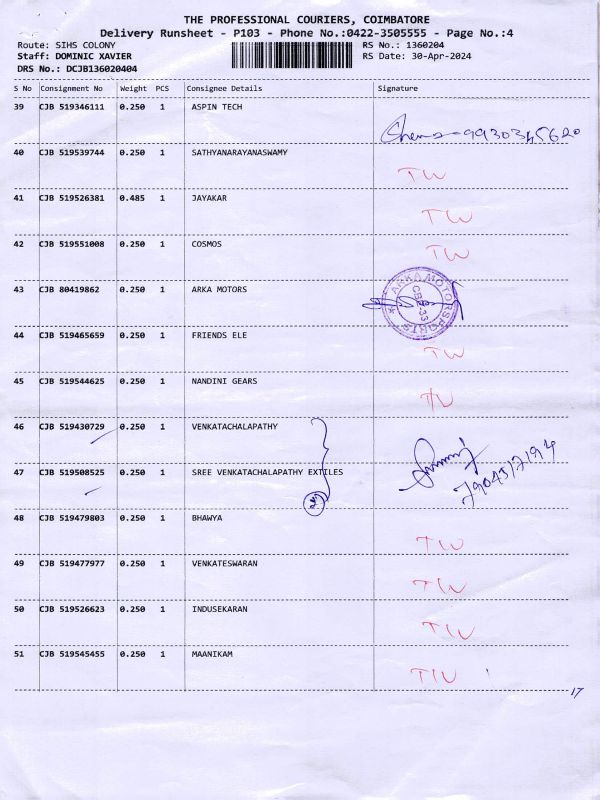 THE PROFESSIONAL COURIERS, COIMBATORE
Delivery Runsheet - P103 - Phone No.:0422-3505555 - Page No.:4
Route: SIHS COLONY RS No.: 1360204
Staff: DOMINIC XAVIER RS Date: 30-Apr-2024
DRS No.: DCJB136020404
S No Consignment No Weight PCS Consignee Details Signature
39 CJB 519346111 0.250 1 ASPIN TECH
9930345620
40 CJB 519539744 0.250 1 SATHYANARAYANASWAMY
TW
41 CJB 519526381 0.485 1 JAYAKAR
TW
42 CJB 519551008 0.250 1 COSMOS
TW
43 CJB 80419862 0.250 1 ARKA MOTORS
ARKA MOTORSPORTS
44 CJB 519465659 0.250 1 FRIENDS ELE
TW
45 CJB 519544625 0.250 1 NANDINI GEARS
TW
46 CJB 519430729 0.250 1 VENKATACHALAPATHY
47 CJB 519508525 0.250 1 SREE VENKATACHALAPATHY EXTILES
7904517194
48 CJB 519479803 0.250 1 BHAWYA
TW
49 CJB 519477977 0.250 1 VENKATESWARAN
TW
50 CJB 519526623 0.250 1 INDUSEKARAN
TW
51 CJB 519545455 0.250 1 MAANIKAM
TW
17